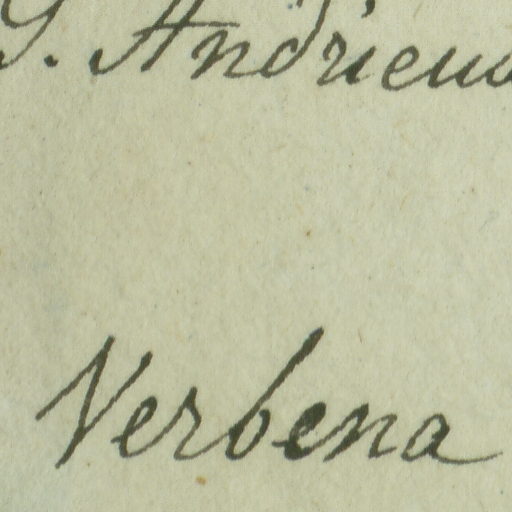 G. Andrieux
Verbena